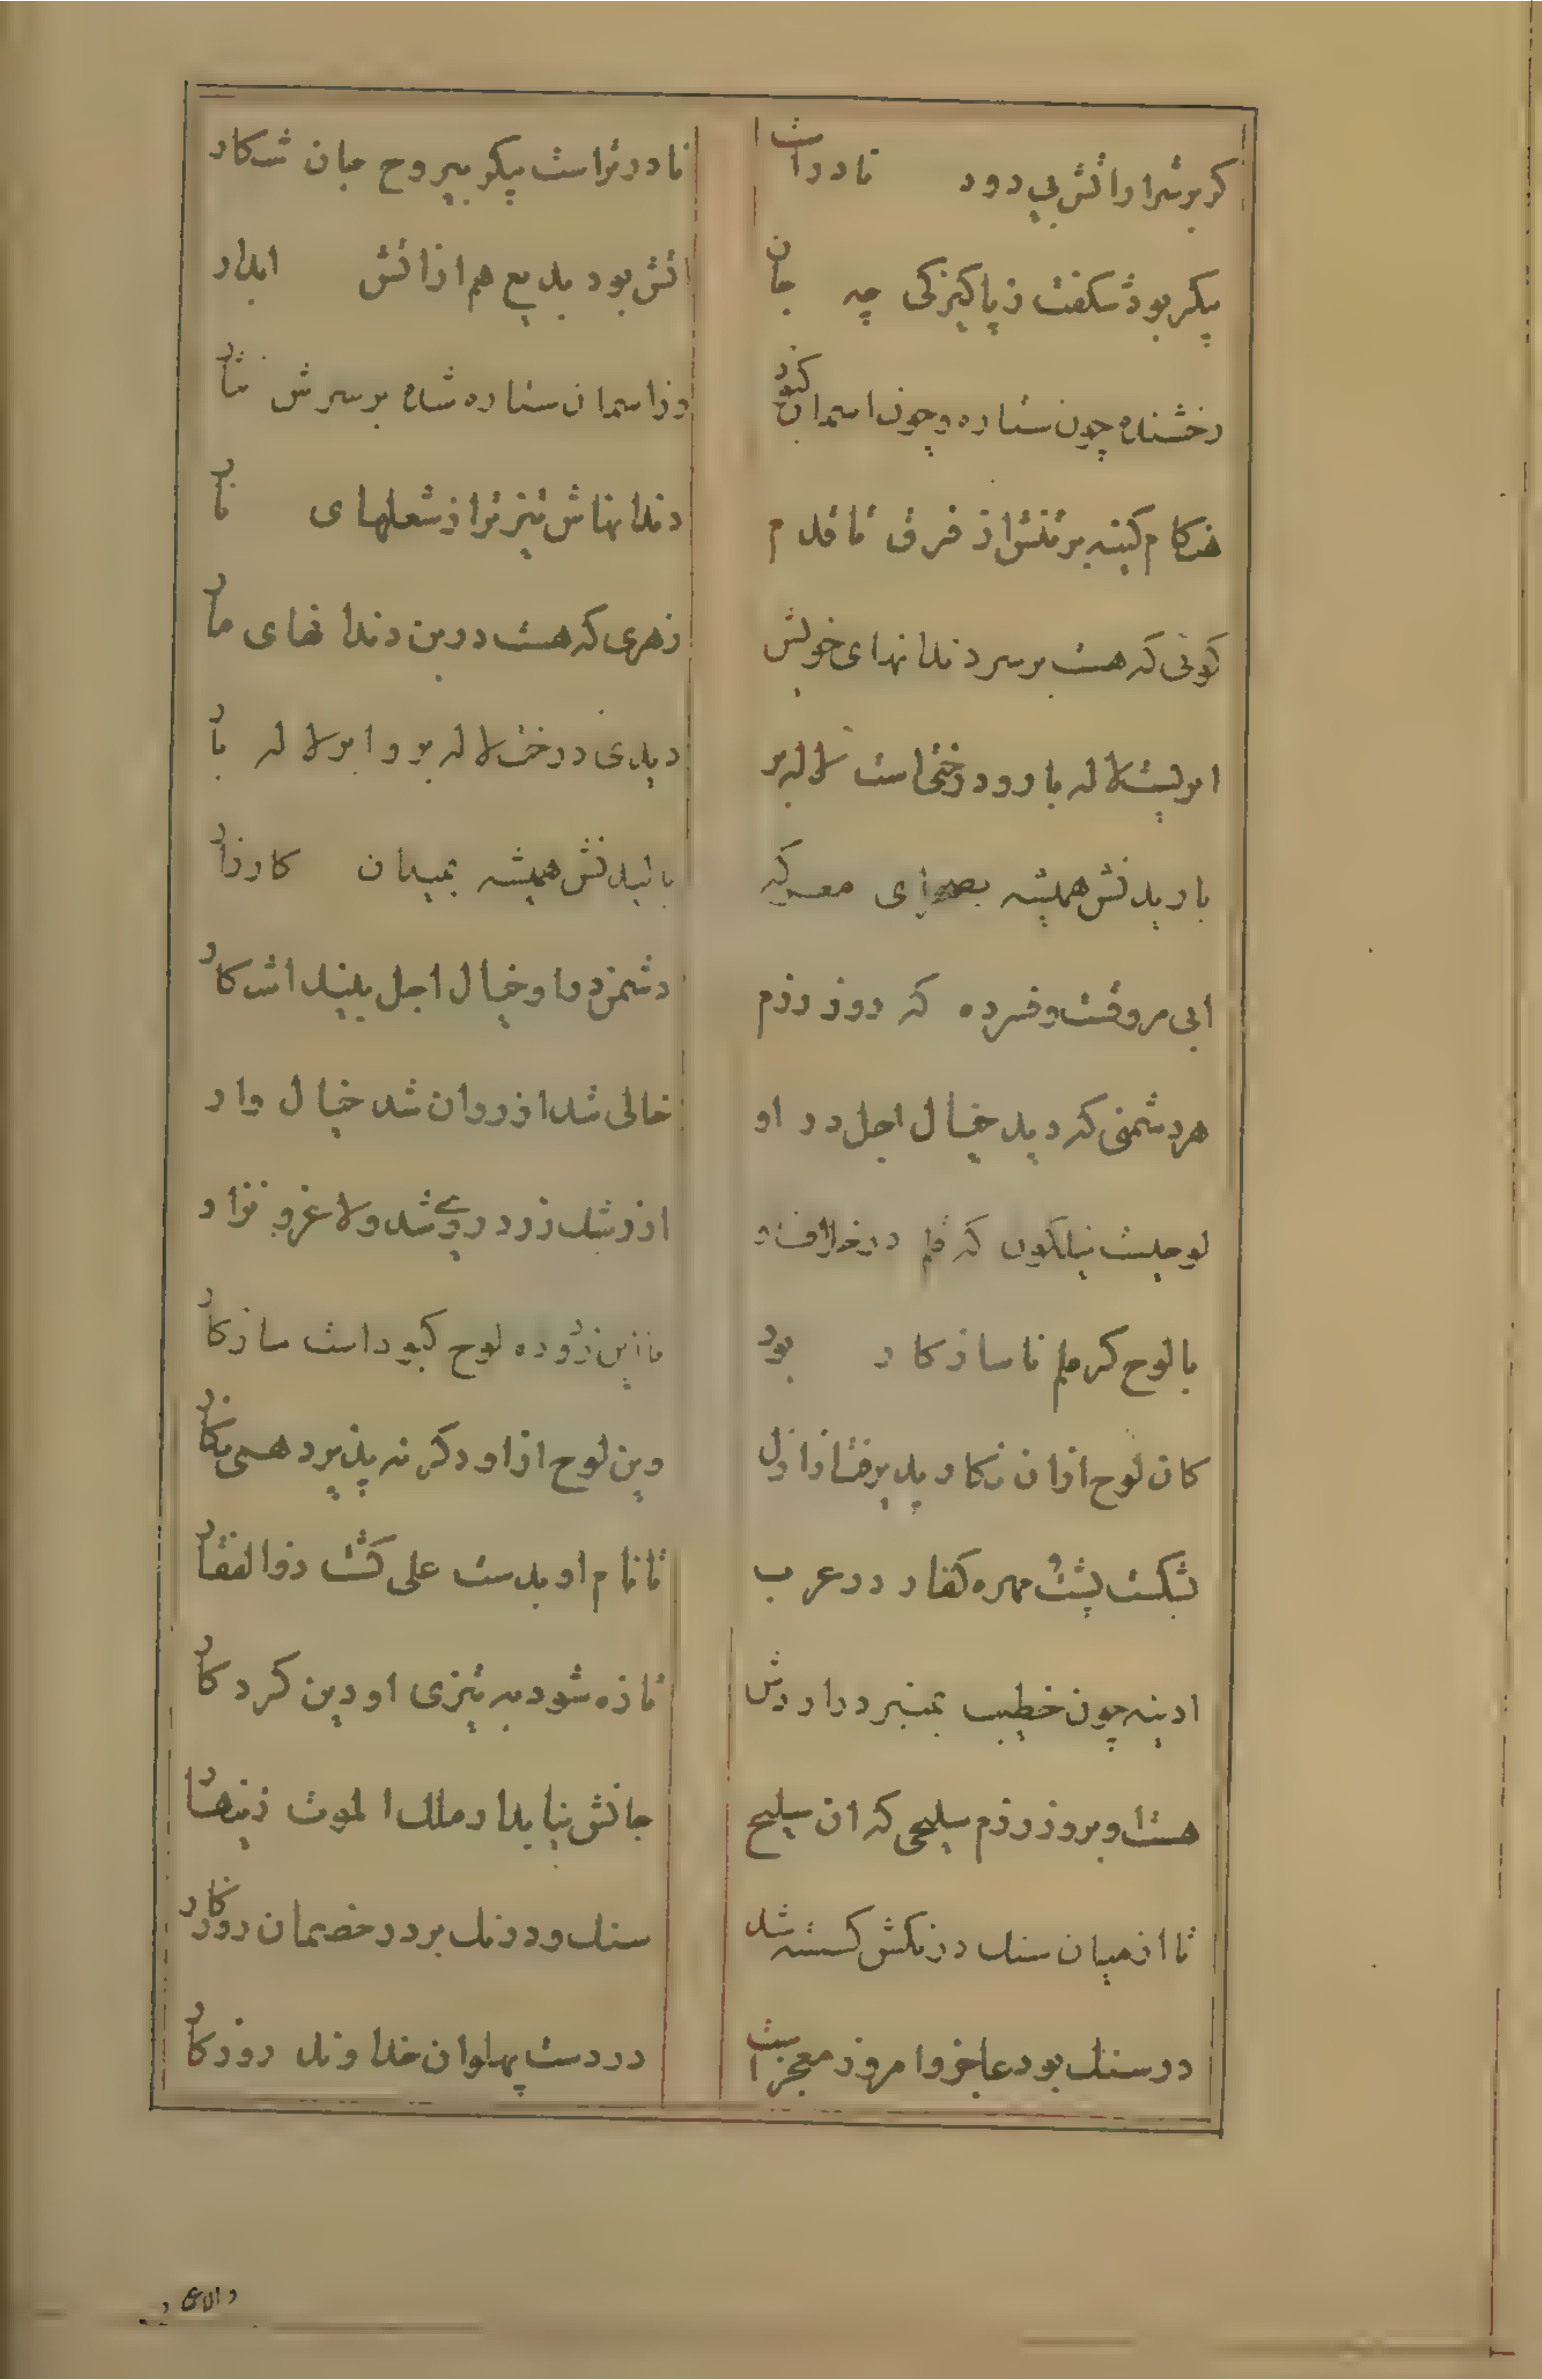 کر بر شرار اتش بی دود نادر است
نادرتر است پیکر بیروح جان شکار
پیکر بود شکفت ز پاکیزکی چه جان
اتش بود بدیع هم از اتش ابدار
رخشنده چون ستاره و چون اسمان کبود
وز اسمان ستاره شده بر سرش نثار
کام کینه بر تنش از فرق تا قدم
دندانهاش تیزتر از شعلهای نار
کوئی که هست بر سر دندانهای خویش
زهری که هست در بن دندانهای مار
ابریست لاله بار و درختی است لاله بر
دیدی درخت لاله بر و ابر لاله بار
باریدنش همیشه بصحرای معرکه
بالیدنش همیشه بمیدان کارزار
ابی مروقست و فسرده که روز رزم
دشمن درو خیال اجل بیند اشکار
هر دشمنی که دید خیال اجل در او
خالی شد از روان شد خیال وار
لوحیست نیلکون که قلم در خلاف او
از رشک زرد روی شد و لاغر و نزار
با لوح کر قلم ناسازکار بود
با این زدوده لوح کبود است سازکار
کان لوح ازان نکار پذیرفت از ازل
وین لوح ازو دکر نه پذیرد همی نکار
بشکست پشت و مهره کفار در عرب
تا نام او بدست علی کشت ذوالفقار
ادینه چون خطیب بمنبر در اردش
تازه شود به تیزی او دین کردکار
هست او بروز رزم سلیحی که ان سلیح
جانش نیابد از ملک الموت زینهار
تا از میان سنک درنکش کسسته شد
سنک و درنک برد ز خصمان روزکار
در سنک بود عاجز و امروز معجز است
در دست پهلوان خداوند روزکار